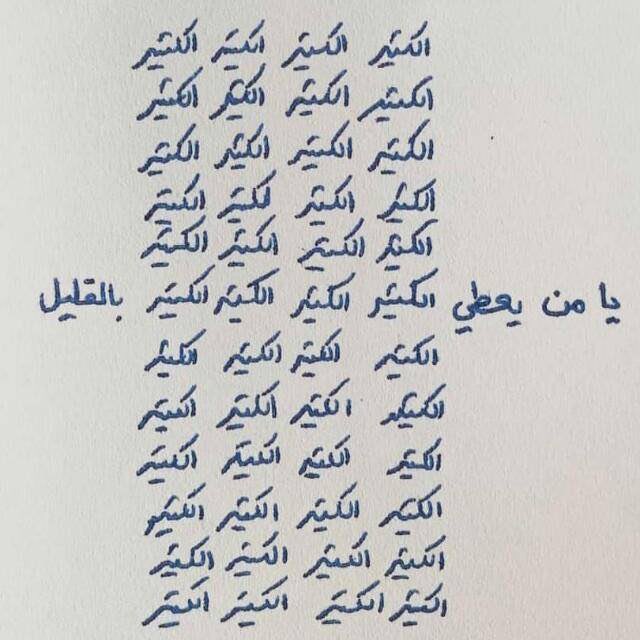 الكثير الكثير الكثير الكثير
الكثير الكثير الكثير الكثير
الكثير الكثير الكثير الكثير
الكثير الكثير لكثير الكثير
الكثير الكثير الكثير الكثير
يا من يعطي الكثير الكثير الكثير الكثير بالقليل
الكثير الكثير الكثير الكثير
الكثير الكثير الكثير الكثير
الكثير الكثير الكثير الكثير
الكثير الكثير الكثير الكثير
الكثير الكثير الكثير الكثير
الكثير الكثير الكثير الكثير